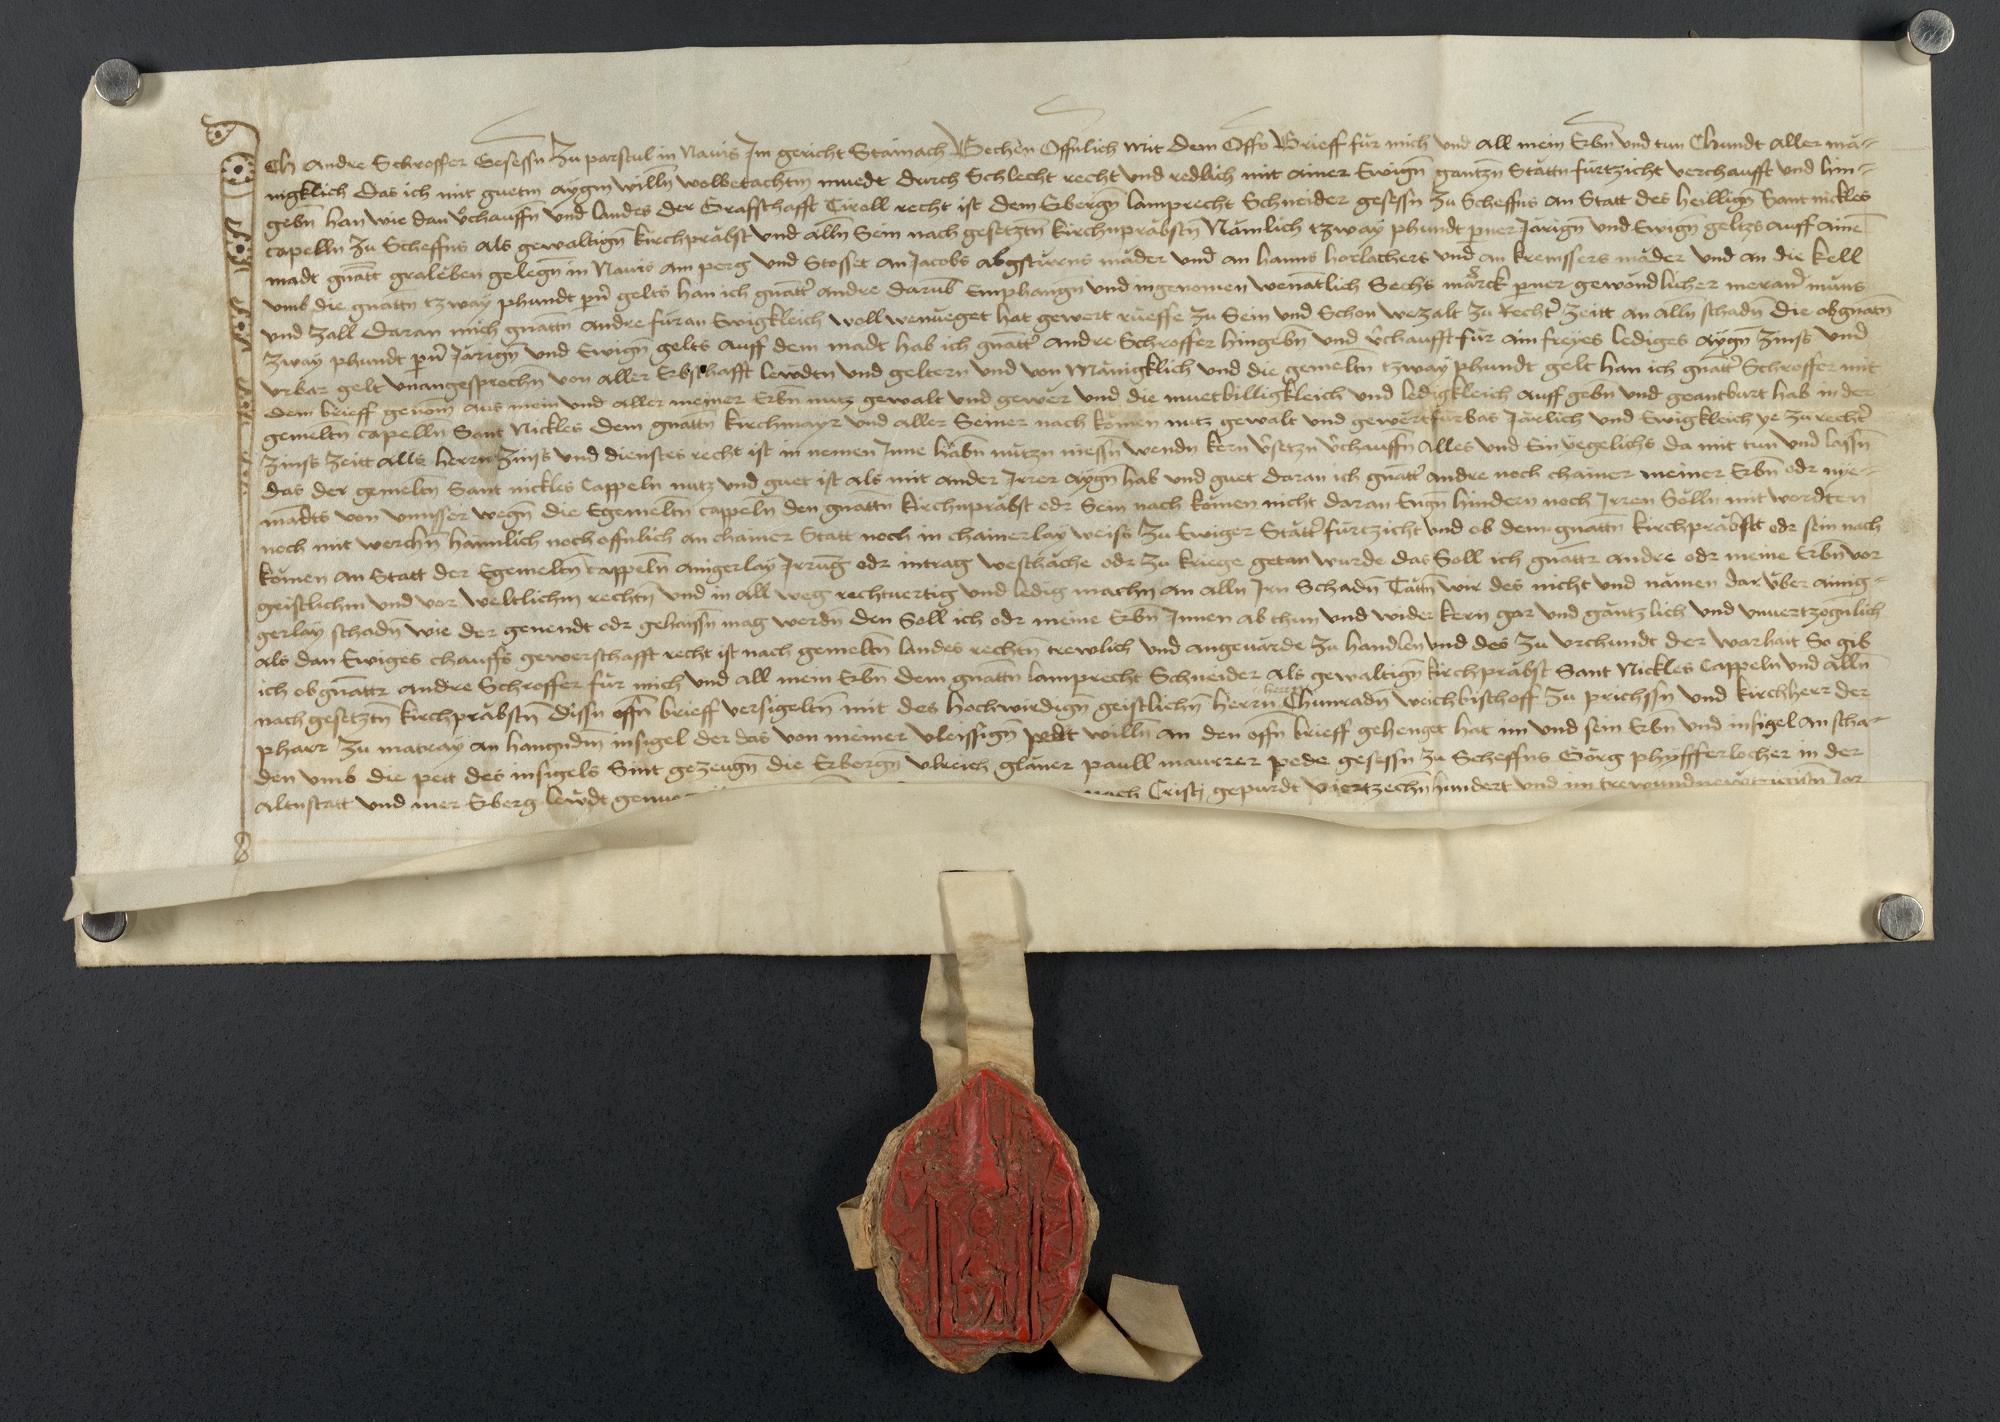 Ich Andre Schroffer Gesessn zu parscul in Nauis Jm gericht Stainach Bechen Offnlich mit dem Offn Brieff für mich und all mein Erbn und tun Chundt aller mä-
nigklich das ich mit guetm aygm willn wolbetachtm muedt durch Schlecht recht und redlich mit ainer Ewign gantzn Stättn fürtzicht verchaufft und hin-
gebn han wie dan v̓chauffn und landes der Grafschafft Tiroll recht ist dem Erbergn lamprecht Schneider gesessn zu Scheffns an Statt des heillign Sant nickles
capelln zu Scheffns als gewaltign kirchpräbst und alln Sein nach gesetztn kirchnpräbstn Nämlich tzway phundt p̄ner Järign und Ewign geltzs auff aine
madt gnātt graleben gelegn in Nauis am perg und Stosset an Jacobs abgsturens mäder und an hanns horlachers und an kremssers mäder und an die kell
umb die gnāttn tzway phundt pn̄ gelts han ich gnātt̓ andre darūb Emphangn und ingenomen wenātlich Sechs marck p̄ner gewondlicher meran̓ müns
und zall daran mich gnāttn andre füran Ewigkleich woll wenüeget hat gewert rueffe zu Sein und Schon wezalt zu recht̓ zeitt an alln schadn die obgnātn
zway phundt pn̄ Järign und Ewign gelts auff dem madt hab ich gnātt̓ andre Schroffer hingebn und v̓chaufft für ain freyes lediges aygn zinss und
urbar gelt unangesprochn von aller Erbschafft lewdtn und geltern und von Mänigklich und die gemeltn tzway phundt gelt han ich gnātt̓ Schroffer mit
dem brieff genom̄ aus mein und aller meiner Erbn nutz gewalt und gewer und die muetbilligkleich und ledigkleich auff gebn und geantburt hab in der
gemeltn capelln Sant Nickles dem gnāttn kirchmayr und aller Seiner nach komen nutz gewalt und gewer fürbas Järlich und Ewigkleich ye zu recht̓
zinss zeitt alls herrn zinss und dienstes recht ist in nemen Jnne habn nutzn niessn wendn kern v̓setzn v̓chauffn alles und Ein yegelichs da mit tun und lassn
das der gemeltn Sant nickles Cappeln nutz und guet ist als mit ander Jrer aygn hab und guet daran ich gnātt̓ andre noch chainer meiner Erbn odr nye-
mādts von unnsser wegn die Egemeltn cappeln den gnāttn kirchnpräbst odr Sein nach komen nicht daran Engn hindern noch Jrren Solln mit wordten
noch mit werchn haimlich noch offnlich an chainer Statt noch in chainerlay weiss zu Ewiger Stätt̓ fürtzicht und ob dem gnāttn kirchpräbstt odr sein nach
komen an Statt der Egemeltn cappeln ainigerlay Jrrūg odr intrag weschäche odr zu kriege getan wurde das Soll ich gnāttr andre odr meine Erbn vor
geistlichm und vor weltlichm rechtn und in all weg rechtuertig und ledig machn an alln Jrn Schadn Tättn wir des nicht und nämen dar über ainig-
gerlay schadn wie der genendt odr gehaissn mag werdn den Soll ich odr meine Erbn Jnnen ab thun und wider kern gar und gäntzlich und unuertzognlich
als dan Ewiges chauffs gewerschafft recht ist nach gemeltn landes rechtn trewlich und angeuärde zu handlen und des zu urchundt der warhait So gib
ich obgnāttr andre Schroffer für mich und all mein Erbn dem gnāttn lamprecht Schneider als gewaltign kirchpräbst Sant Nickles Cappeln und alln
nach gesetztn kirchpräbstn dissn offn brieff versigeltn mit des hochwirdign geistlichn herrn herrn Chunradn weichbischoff zu prichssn und kirchherr der
pharr zu matray an hangndm insigel der das von meiner vleissign pedt willn an den offn brieff gehenget hat im und sein Erbn und insigel an scha-
den umb die pett des insigels Sint gezeugn die Erbergn Ulreich glaner paull maurrer pede gesessn zu Scheffns Görg phyffferlocher in der
altnstatt und mer Erberg lewdt genueg nach Cristj gepurdt viertzechn hundert und im trewundnewtzigistn Jar